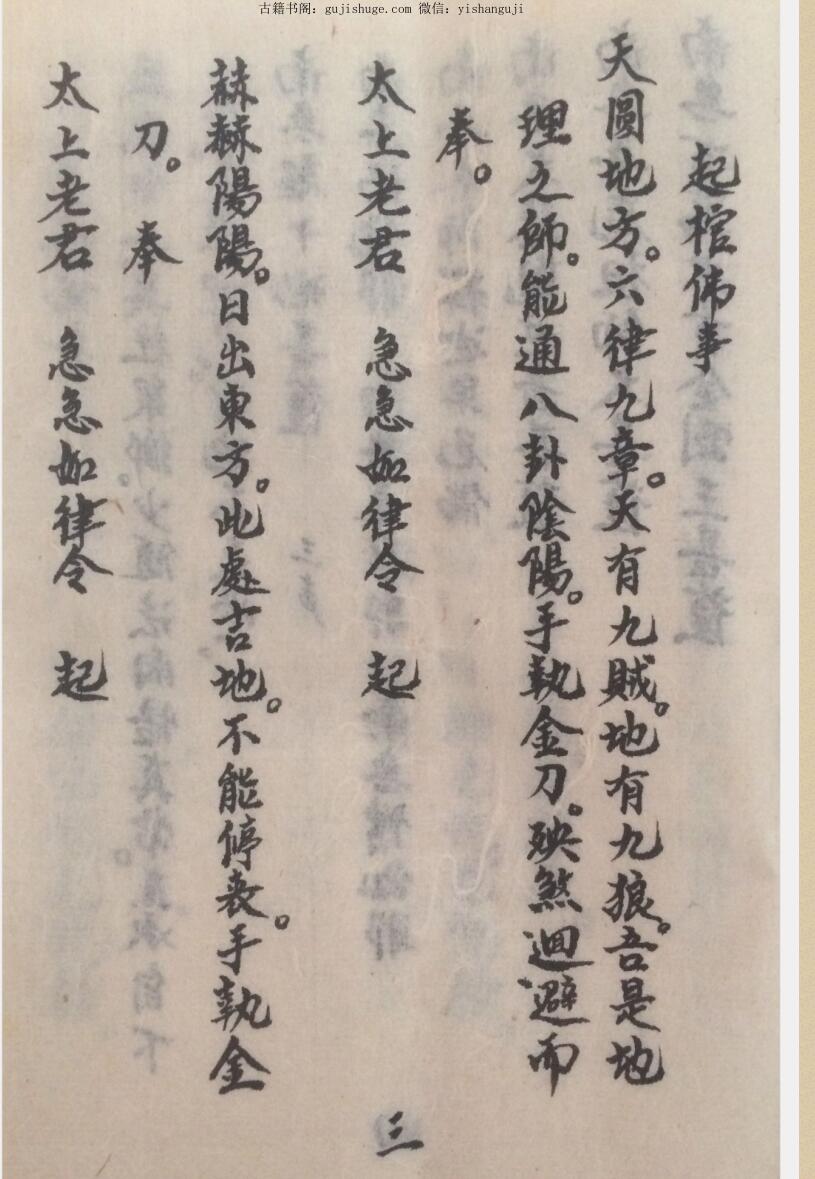 古籍书阁：gujishuge.com 微信：yishanguji
起棺伟事
天圓地方。六律九章。天有九賊。地有九狼。吾是地
理之師。能通八卦陰陽。手執金刀。殃煞迴避而
奉。
太上老君　急急如律令　起
赫赫陽陽。日出東方。此處吉地。不能停丧。手執金
刀。奉
太上老君　急急如律令　起
三